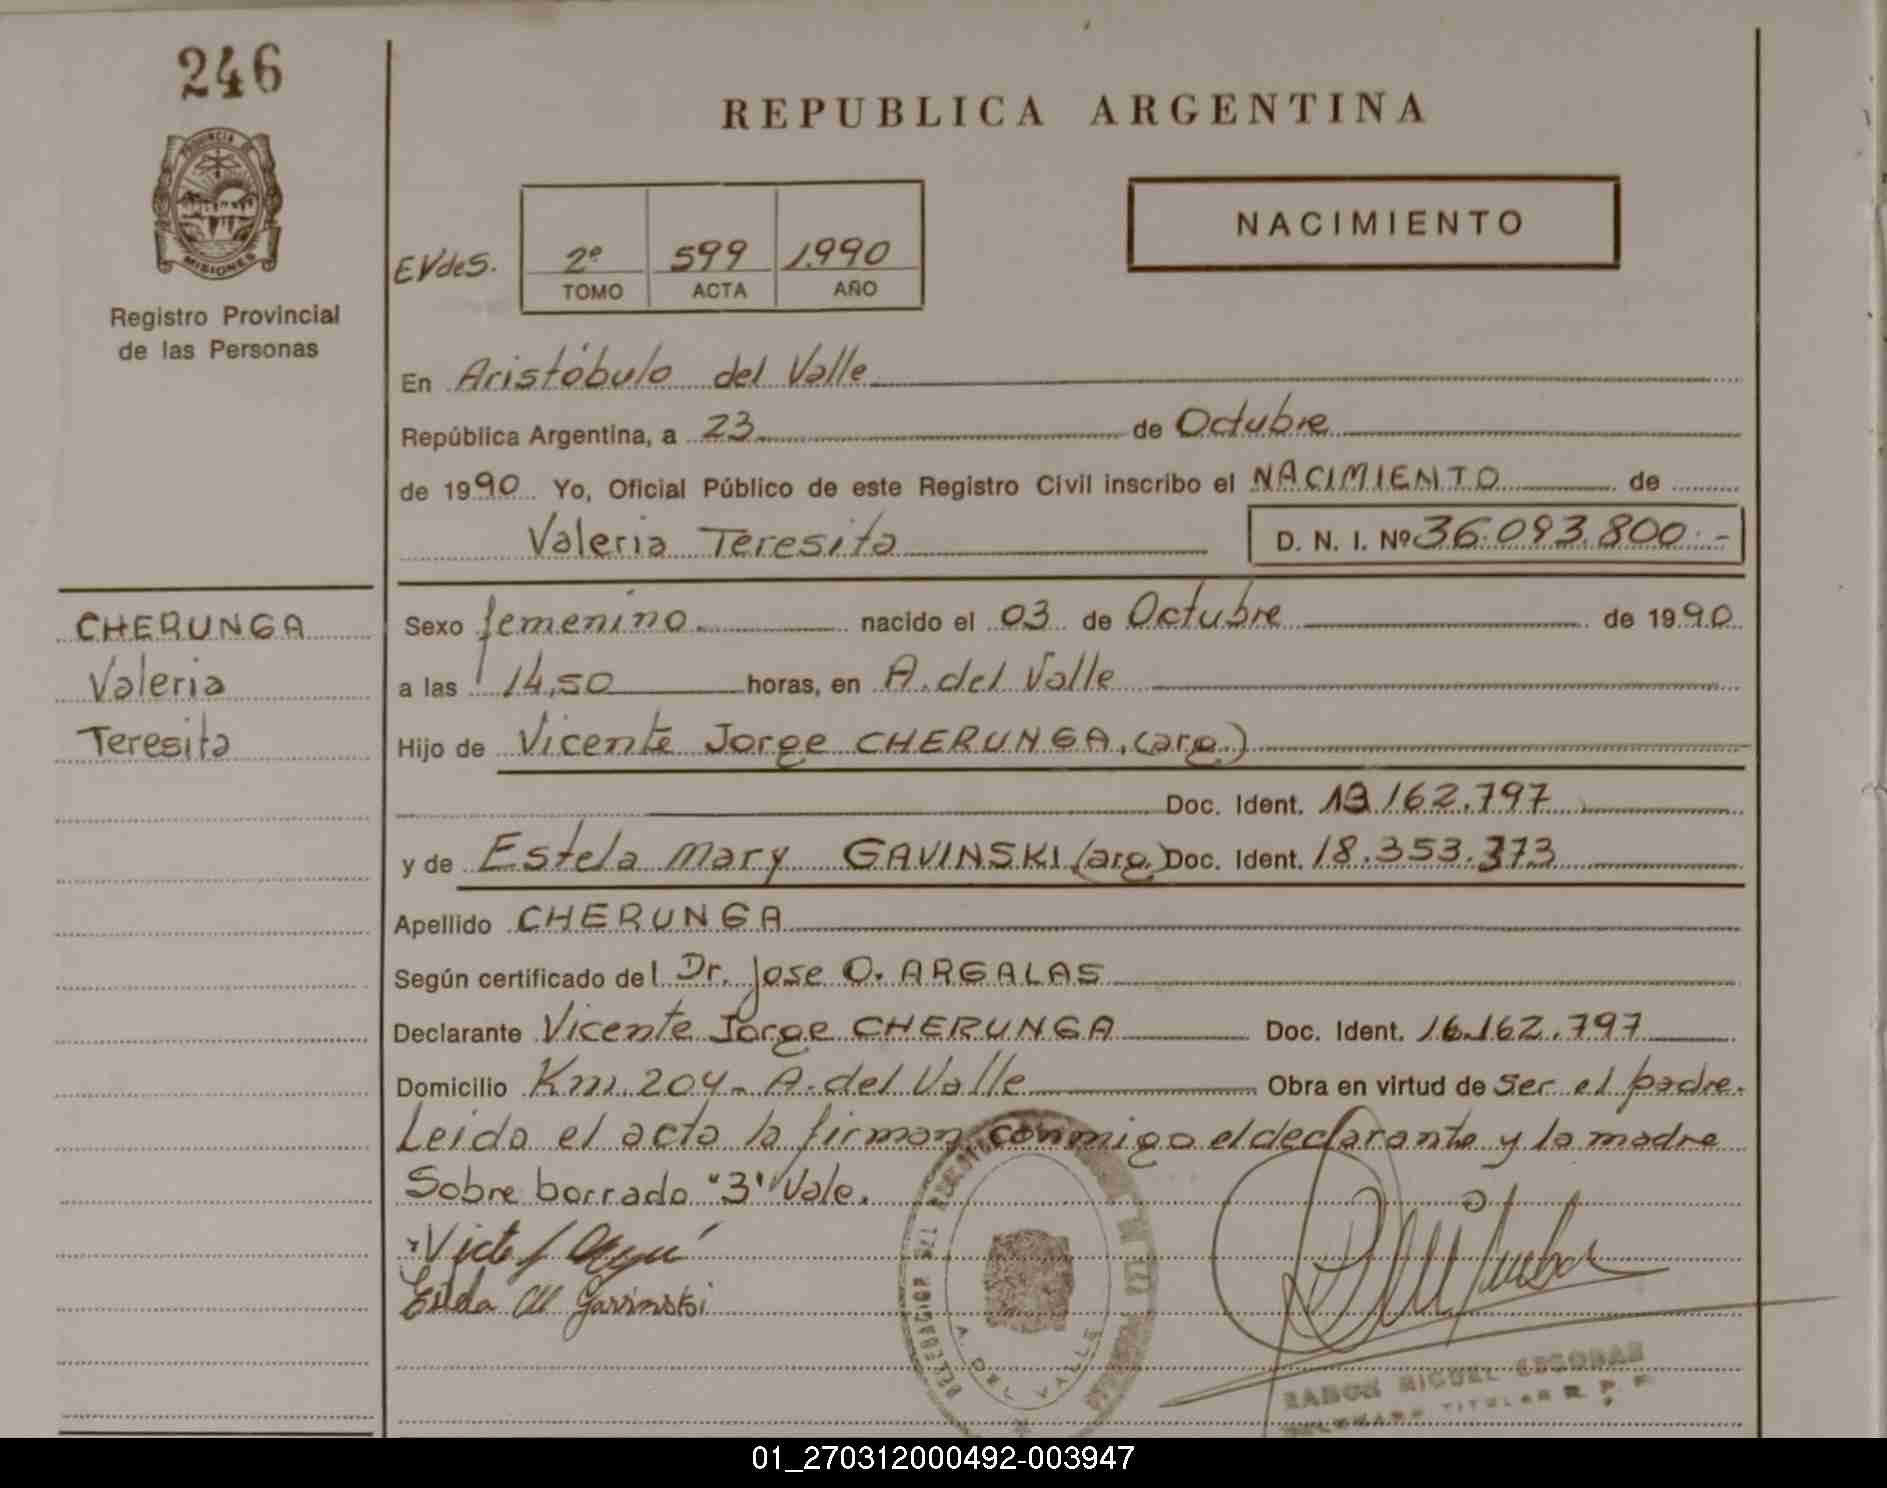 246
REPUBLICA ARGENTINA
PROVINCIA DE
MISIONES
Registro Provincial
de las Personas
NACIMIENTO
EVdeS.
2º 599 1.990
TOMO ACTA AÑO
En Aristóbulo del Valle
República Argentina, a 23 de Octubre
de 1990 Yo, Oficial Público de este Registro Civil inscribo el NACIMIENTO de
Valeria Teresita D. N. I. Nº 36.093.800.-
CHERUNGA
Valeria
Teresita
Sexo femenino. nacido el 03 de Octubre de 1990
a las 14,50 horas, en A. del Valle
Hijo de Vicente Jorge CHERUNGA, (arg.)
Doc. Ident. 162.797
y de Estela Mary GAVINSKI (arg.) Doc. Ident. 18.353.373
Apellido CHERUNGA
Según certificado del Dr. Jose O. ARGALAS
Declarante Vicente Jorge CHERUNGA Doc. Ident. 16.162.797
Domicilio Km. 204- A. del Valle Obra en virtud de ser el padre.
Leida el acta la firman conmigo el declarante y la madre
Sobre borrado "3" Vale.
Gavinski
A. DEL VALLE
RAMON MIGUEL ESCOBAR
TITULAR R. P. P.
01_270312000492-003947